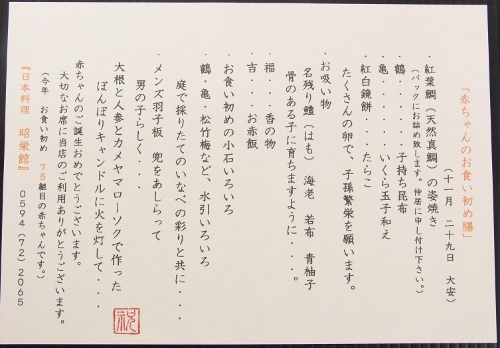 『赤ちゃんのお食い初め膳』
（十一月 二十九日 大安）
・紅葉鯛（天然真鯛）の姿焼き
（パックにお詰め致します。仲居に申し付け下さい。）
・鶴・・・・・・子持ち昆布
・亀・・・・・・いくら玉子和え
・紅白鏡餅・・・・たらこ
たくさんの卵で、子孫繁栄を願います。
・お吸い物
名残り鱧（はも） 海老 若布 青柚子
骨のある子に育ちますように・・・。
・福・・・・香の物
・吉・・・・お赤飯
・お食い初めの小石いろいろ
・鶴・亀・松竹梅など、水引いろいろ
庭で採りたてのいなべの彩りと共に・・・・
・メンズ羽子板 兜をあしらって
男の子らしく・・・・
大根と人参とカメヤマローソクで作った
ぼんぼりキャンドルに火を灯して・・・・
赤ちゃんのご誕生おめでとうございます。
大切なお席に当店のご利用ありがとうございます。
（今年 お食い初め 75組目の赤ちゃんです。）
『日本料理 昭栄館』 0594(72)2065
祝